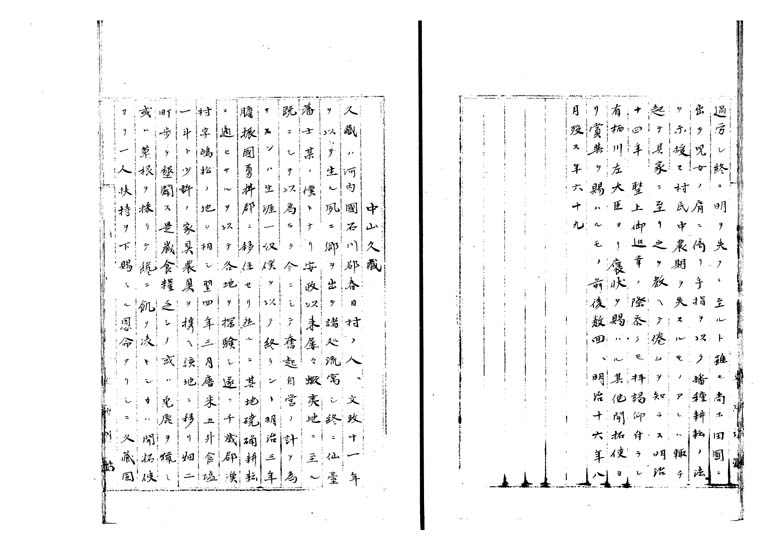 過労シ終ニ明ヲ失フニ至ルト雖モ尚ホ田圃ニ
出テ児女ノ肩ニ倚リ手指ヲ以テ播種耕耘ノ法
ヲ示援シ村民中農期ヲ失スルモノアレハ輙チ
起テ其家ニ至リ之ヲ教ヘテ倦ムヲ知ラス明治
十四年聖上御巡幸ノ際忝クモ拝謁仰付ラレ
有栖川左大臣ヨリ褒状ヲ賜ハル其他開拓使ヨ
リ賞典ヲ賜ハルモノ前後数回、明治十六年八
月歿ス年六十九
中山久蔵
久蔵ハ河内国石川郡春日村ノ人、文政十一年
ヲ以テ生レ夙ニ郷ヲ出テ諸処流寓シ終ニ仙台
藩士某ノ僕トナリ安政以来屡々蝦夷地ニ至ル
既ニシテ以為ラク今ニシテ奮起自営ノ計ヲ為
サスンハ生涯一奴僕ヲ以テ終ラント明治三年
胆振国勇払郡ニ移住セリ然レ𪜈其地磽确耕耘
ニ適セサルヲ以テ各地ヲ探験シ遂ニ千歳郡漢
村字嶋松ノ地ヲ相シ翌四年三月唐米五升食塩
一斗ト少許ノ家具農具ヲ携ヘ該地ニ移リ畑二
町歩ヲ墾闢ス是歳食糧乏シク或ハ兎鹿ヲ猟シ
或ハ草根ヲ採リテ纔ニ飢ヲ凌キシカハ開拓使
ヨリ一人扶持ヲ下賜ハル恩命アリシニ久蔵固